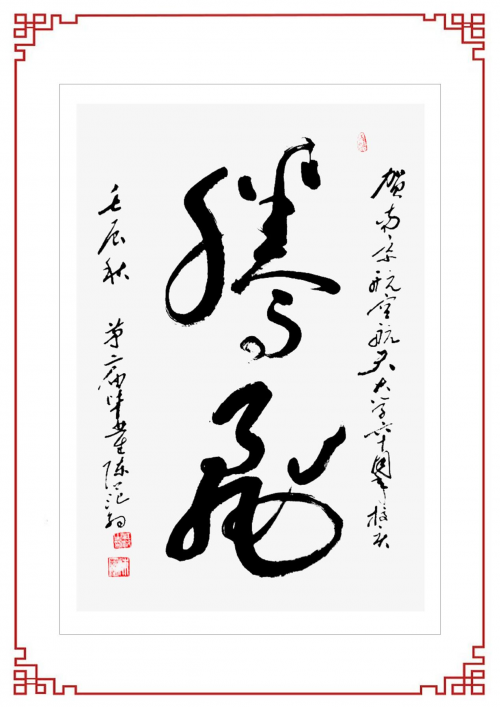 贺南京航空航天大学六十周年校庆
腾飛
壬辰秋 第二届毕业生陈